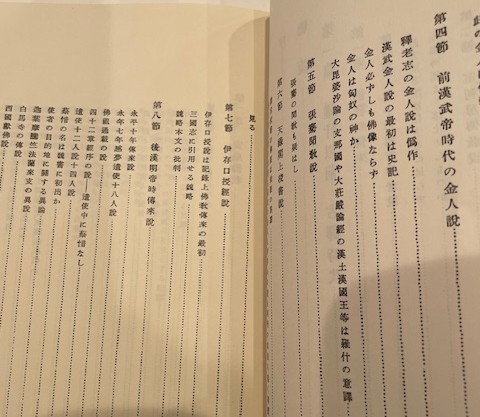 第四節　前漢武帝時代の金人說
釋老志の金人說は僞作
漢武金人說の最初は史記
金人必ずしも佛像ならず
金人は匈奴の神か
大毘婆沙論の支那國や大莊嚴論經の漢土漢國王等は羅什の意譯
第五節　張騫聞敎說
張騫の聞敎も疑はし
第六節　天祿閣上
見る
第七節　伊存口授經說
伊存口授說は記錄上佛敎傳來の最初
三國志に引用せる魏略
魏略本文の批判
第八節　後漢明帝時傳來說
永平十年傳來說
永平七年感夢遣使十八人說
佛祖通載の說
四十二章經序の說—遣使中に蔡愔なし
遣使十二人說十四人說
蔡愔の名は魏書に初出か
使者の目的地に關する異論
迦葉摩騰竺法蘭來支の異論
白馬寺の傳說
四國獻佛說